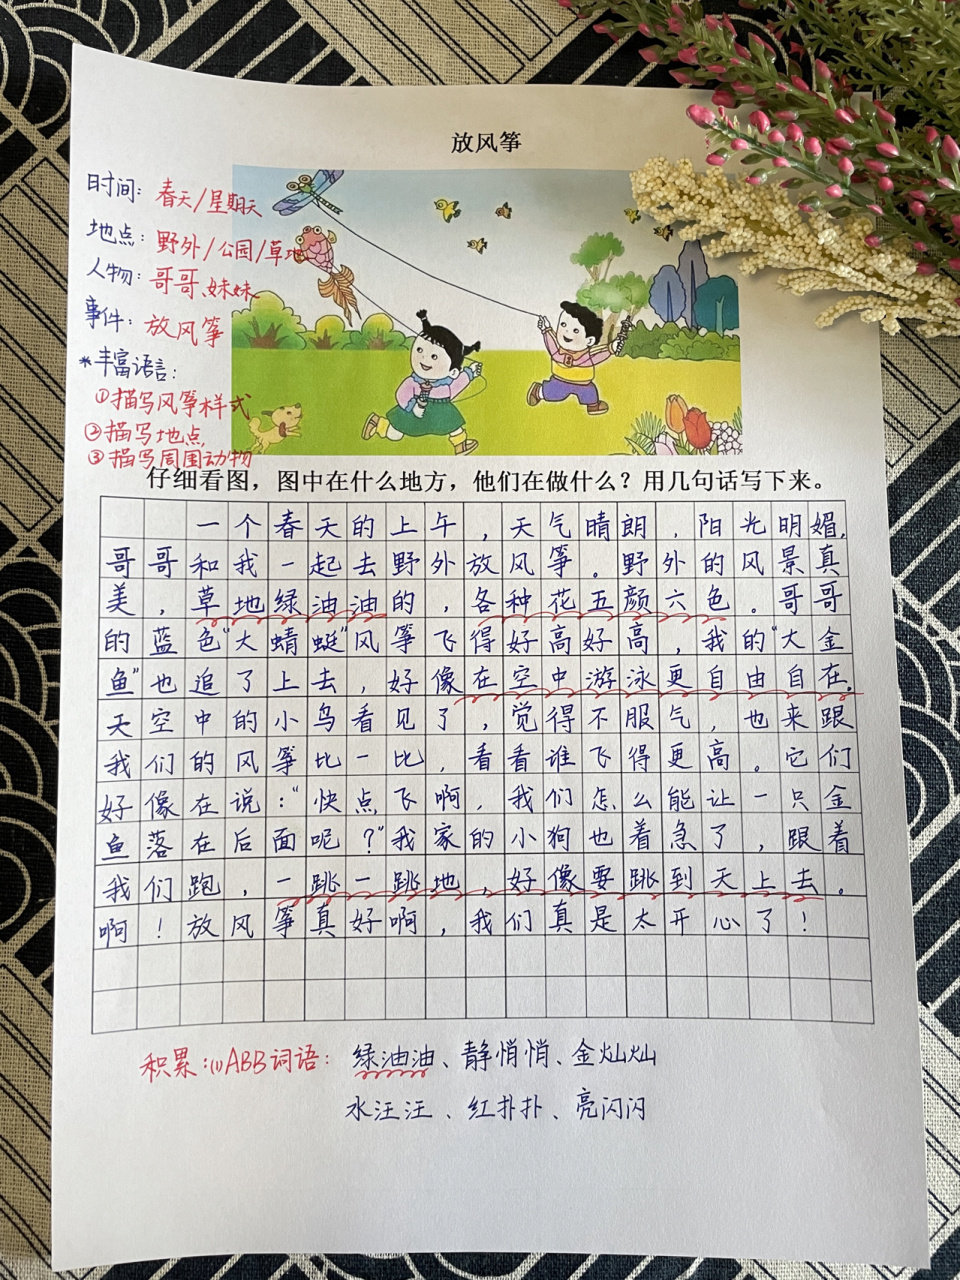 放风筝
时间：春天/星期天
地点：野外/公园/草地
人物：哥哥、妹妹
事件：放风筝
*丰富语言：
①描写风筝样式
②描写地点
③描写周围动物
仔细看图，图中在什么地方，他们在做什么？用几句话写下来。
一个春天的上午，天气晴朗，阳光明媚，
哥哥和我一起去野外放风筝。野外的风景真
美，草地绿油油的，各种花五颜六色。哥哥
的蓝色“大蜻蜓”风筝飞得好高好高，我的“大金
鱼”也追了上去，好像在空中游泳更自由自在。
天空中的小鸟看见了，觉得不服气，也来跟
我们的风筝比一比，看看谁飞得更高。它们
好像在说：“快点飞啊，我们怎么能让一只金
鱼落在后面呢？”我家的小狗也着急了，跟着
我们跑，一跳一跳地，好像要跳到天上去。
啊！放风筝真好啊，我们真是太开心了！
积累：(1)ABB词语：绿油油、静悄悄、金灿灿
水汪汪、红扑扑、亮闪闪